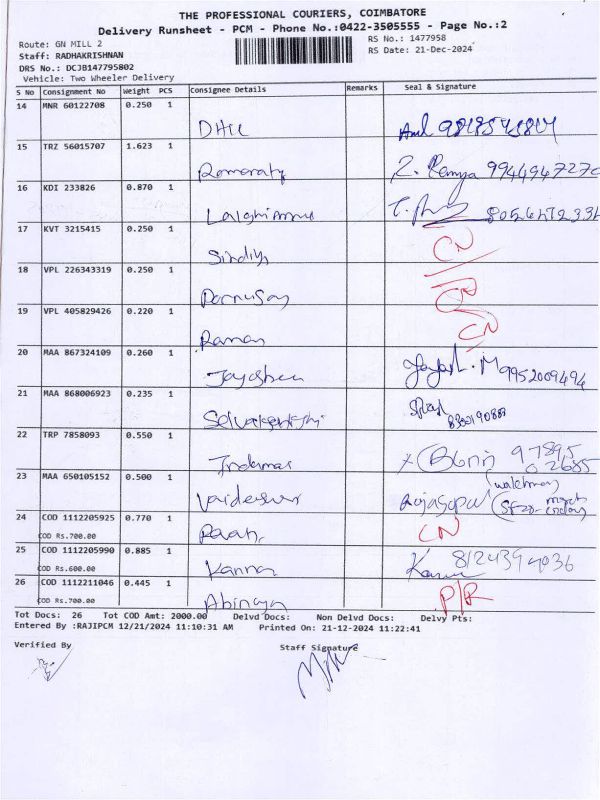 THE PROFESSIONAL COURIERS, COIMBATORE
Delivery Runsheet - PCM - Phone No.:0422-3505555 - Page No.:2
Route: GN MILL 2
RS No.: 1477958
Staff: RADHAKRISHNAN
RS Date: 21-Dec-2024
DRS No.: DCJB147795802
Vehicle: Two Wheeler Delivery
S No Consignment No Weight PCS Consignee Details Remarks Seal & Signature
14 MNR 60122708 0.250 1
DHLL
15 TRZ 56015707 1.623 1
Z. Ramya 9944947270
16 KDI 233826 0.870 1
17 KVT 3215415 0.250 1 CN
Sindiya
18 VPL 226343319 0.250 1
Ponnusay
19 VPL 405829426 0.220 1 CN
Raman
20 MAA 867324109 0.260 1
Jayashree 9952009494
21 MAA 868006923 0.235 1
22 TRP 7858093 0.550 1 97895
02685
23 MAA 650105152 0.500 1 (watchman)
Rajagopal
24 COD 1112205925 0.770 1 CN
COD Rs.700.00
25 COD 1112205990 0.885 1 8124394036
COD Rs.600.00 Kanna
26 COD 1112211046 0.445 1 P/R
COD Rs.700.00 Abinaya
Tot Docs: 26 Tot COD Amt: 2000.00 Delvd Docs: Non Delvd Docs: Delvy Pts:
Entered By :RAJIPCM 12/21/2024 11:10:31 AM Printed On: 21-12-2024 11:22:41
Verified By Staff Signature